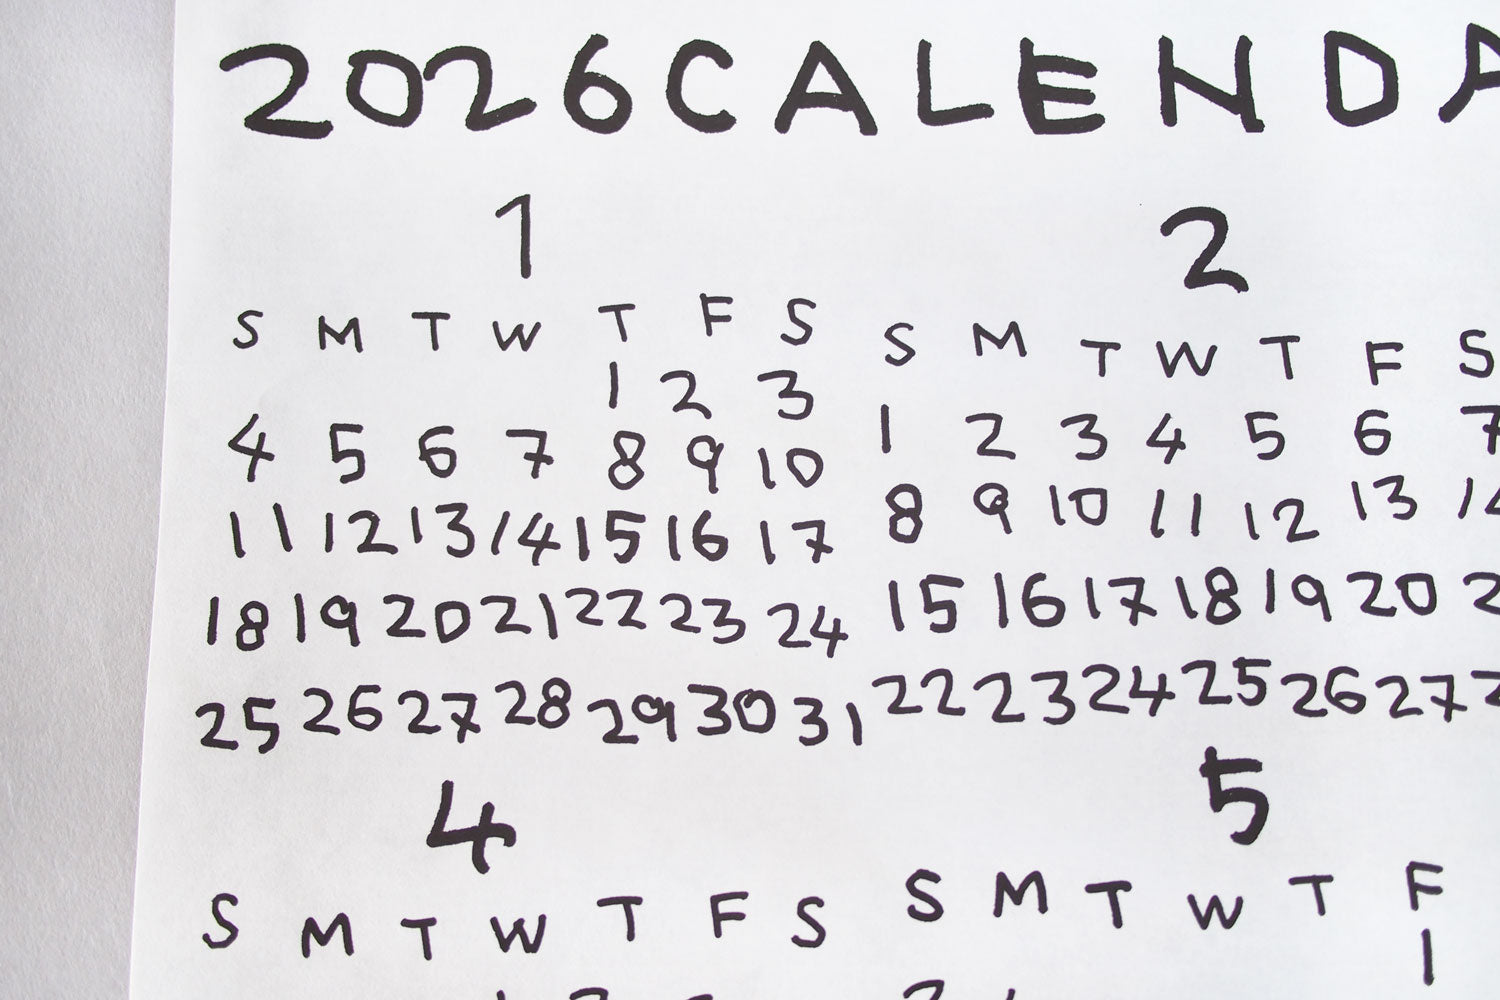 2026 CALENDA
1
S M T W T F S
1 2 3
4 5 6 7 8 9 10
11 12 13 14 15 16 17
18 19 20 21 22 23 24
25 26 27 28 29 30 31
2
S M T W T F S
1 2 3 4 5 6 7
8 9 10 11 12 13 14
15 16 17 18 19 20
22 23 24 25 26 27
4
S M T W T F S
5
S M T W T F
1